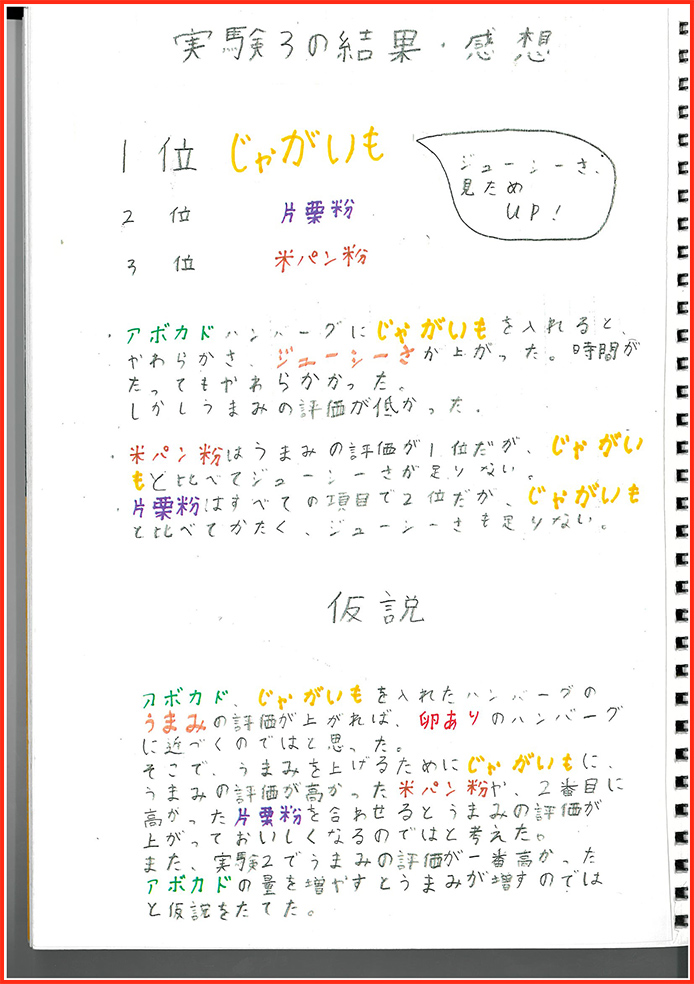 実験3の結果・感想
1位 じゃがいも
ジューシーさ、
見ため
UP!
2位 片栗粉
3位 米パン粉
・アボカドハンバーグにじゃがいもを入れると、
やわらかさ、ジューシーさが上がった。時間が
たってもやわらかかった。
しかしうまみの評価が低かった.
・米パン粉はうまみの評価が1位だが、じゃがい
もと比べてジューシーさが足りない。
・片栗粉はすべての項目で2位だが、じゃがいも
と比べてかたく、ジューシーさも足りない。
仮説
アボカド、じゃがいもを入れたハンバーグの
うまみの評価が上がれば、卵ありのハンバーグ
に近づくのではと思った。
そこで、うまみを上げるためにじゃがいもに、
うまみの評価が高かった米パン粉や、2番目に
高かった片栗粉を合わせるとうまみの評価が
上がっておいしくなるのではと考えた。
また、実験2でうまみの評価が一番高かった
アボカドの量を増やすとうまみが増すのでは
と仮説をたてた。